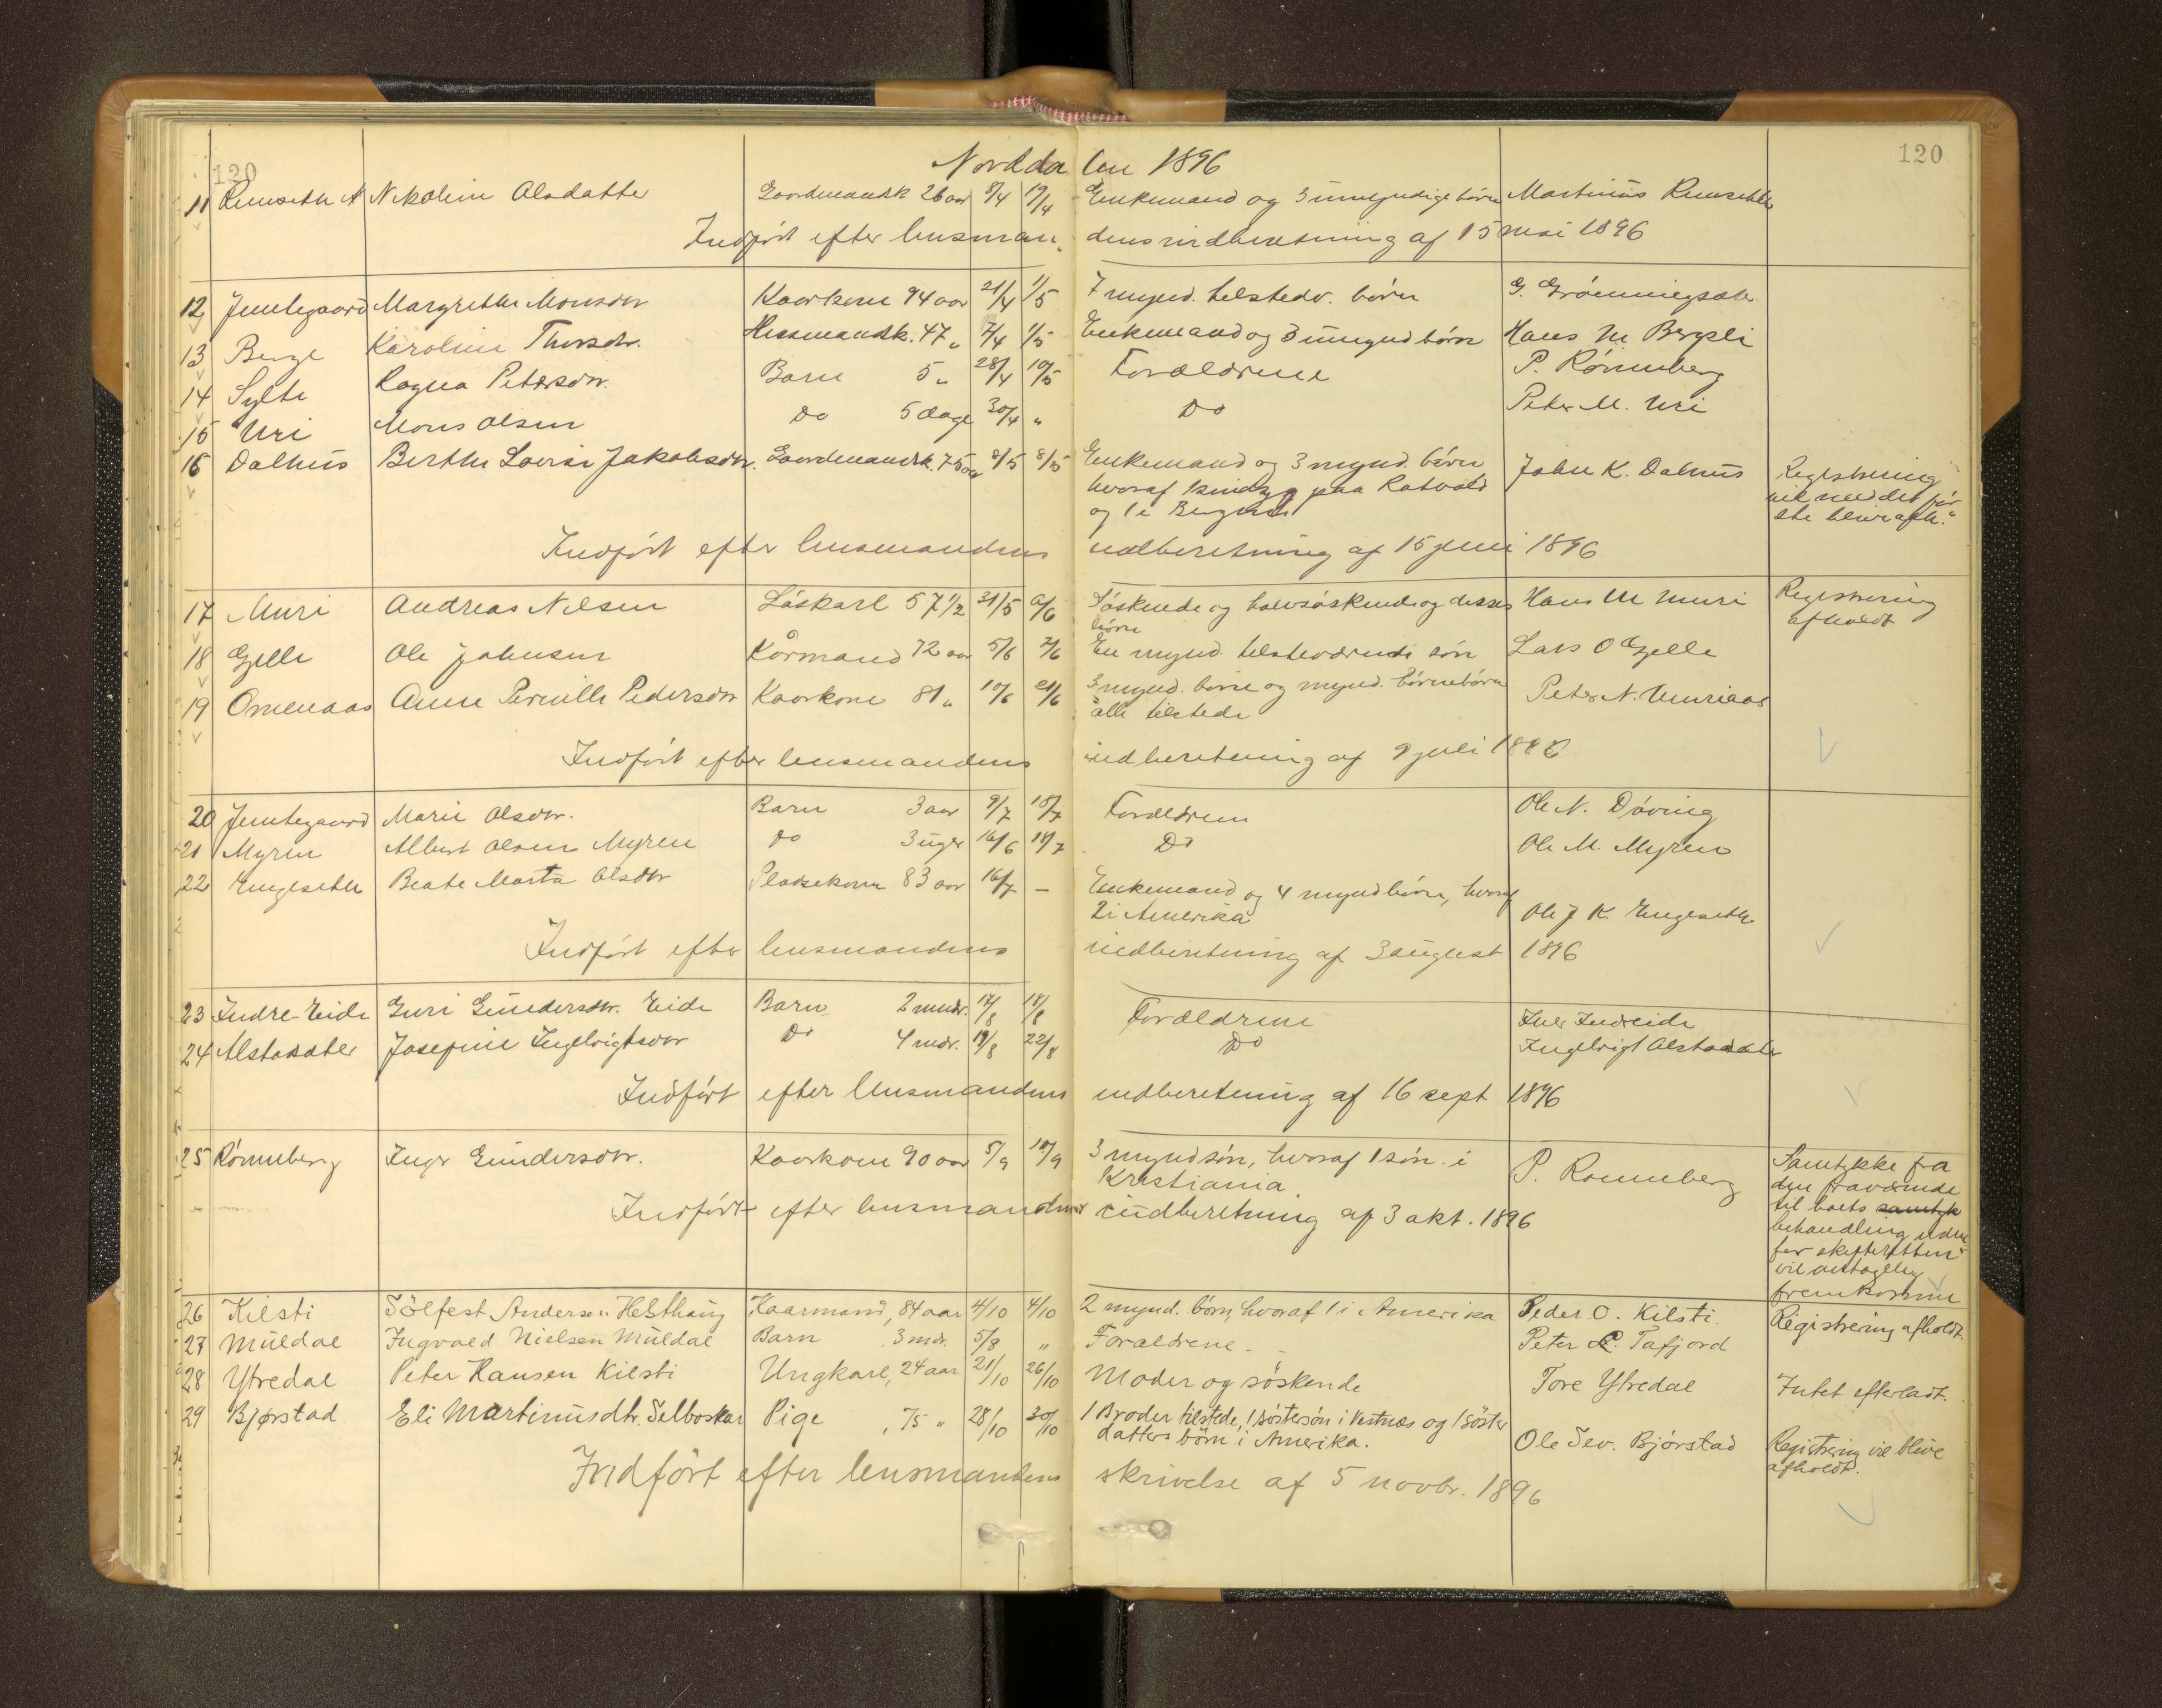 120 Norddalen 1896 120
11 Remseth N Nikoline Olsdatter Gaardmandsk 26 aar 8/4 19/4 Enkemand og 3 umyndige børn Martinus Remseth
Indført efter lensmandens indberetning af 15 mai 1896
12 Jemtegaard Margrethe Monsdtr Kaarkone 94 aar 21/4 1/5 7 mynd. tilstedv. børn G. Grønningsæter
13 Berge Karoline Thorsdtr. Husmandsk. 47 " 7/4 1/5 Enkemand og 3 umynd børn Hans M Bergli
14 Sylte Ragna Petersdtr. Barn 5 " 28/4 10/5 Forældrene P. Rønneberg
15 Uri Mons Olsen Do 5 dage 30/4 " Do Peter M. Uri
16 Dalhus Berthe Lovise Jakobsdtr. Gaardmandsk. 75 aar 8/5 8/5 Enkemand og 3 mynd. børn John K. Dalhus Registrering
hvoraf 1 paa
og 1 i Bergen
vil med det før-
ste blive afh.
Indført efter lensmandens indberetning af 15 juni 1896
17 Muri Andreas Nilsen Løskarl 57 1/2 31/5 6/6 Søskende og halvsøskende og disses Hans M Muri Registrering
børn
afholdt
18 Gjelle Ole Johnsen Kårmand 72 aar 5/6 7/6 En mynd. tilstedværende søn Lars O Gjelle
19 Omenaas Anne Pernille Pedersdtr Kaarkone 81 " 10/6 21/6 3 mynd. børn og mynd. børnebørn Peter N. Muriaas
alle tilstede
Indført efter lensmandens indberetning af 9 juli 1896
20 Jemtegaard Marie Olsdtr. Barn 3 aar 9/7 18/7 Forældrene Ole N. Døving
21 Myren Albert Olsen Myren Do 3 uger 16/6 18/7 Do Ole M. Myren
22 Engeseth Beate Marta Olsdtr Pladsekone 83 aar 16/7 — Enkemand og 4 mynd børn, hvoraf
2 i Amerika Ole J K. Engeseth
Indført efter lensmandens indberetning af 3 august 1896
23 Indre-Eide Guri Gundersdtr. Eide Barn 2 mndr. 17/8 18/8 Forældrene Iver Indreide
24 Alstadsæter Josefine Ingebrigtsdtr Do 4 mdr. 19/8 22/8 Do Ingebrigt Alstadsæter
Indført efter lensmandens indberetning af 16 sept 1896
25 Rønneberg Inger Gundersdtr. Kaarkone 90 aar 5/9 10/9 3 mynd søn, hvoraf 1 søn i P. Rønneberg Samtykke fra
Kristiania
den fraværende
til boets samtyk
behandling uden-
for skifteretten
vil antagelig
fremkomme
Indført efter lensmandens indberetning af 3 okt. 1896
26 Kilsti Sölfest Andersen Hesthaug Kaarmand, 84 aar 4/10 4/10 2 mynd. börn, hvoraf 1 i Amerika Peder O. Kilsti. Registrering afholdt.
27 Muldal Ingvald Nielsen Muldal Barn , 3 mdr. 5/8 " Forældrene - Peter P. Tafjord
28 Ytredal Peter Hansen Kilsti Ungkarl, 24 aar 21/10 26/10 Moder og söskende Tore Ytredal Intet efterladt.
29 Bjørstad Eli Martinusdtr. Selboskar Pige , 75 " 28/10 30/10 1 Broder tilstede, 1 söstersön i Vestnæs og 1 söster
datters börn i Amerika. Ole Sev. Bjørstad Registrering vil blive
afholdt.
Indført efter lensmandens skrivelse af 5 novbr. 1896